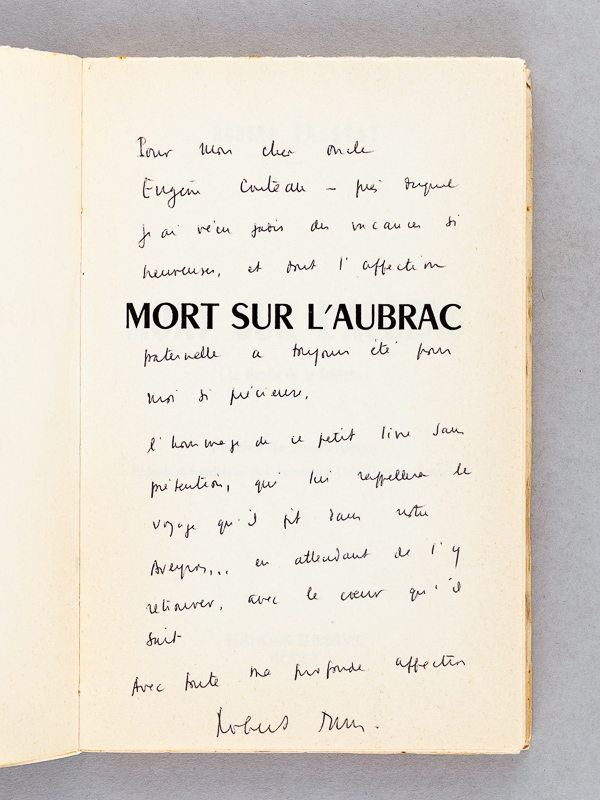 Pour mon cher oncle
Eugène Couteau – près duquel
j'ai vécu jadis des vacances si
heureuses, et dont l'affection
MORT SUR L'AUBRAC
paternelle a toujours été pour
moi si précieuse,
l'hommage de ce petit livre sans
prétention, qui lui rappellera le
voyage qu'il fit dans notre
Aveyron... en attendant de l'y
retrouver, avec le cœur qu'il
sait
Avec toute ma profonde affection
Robert